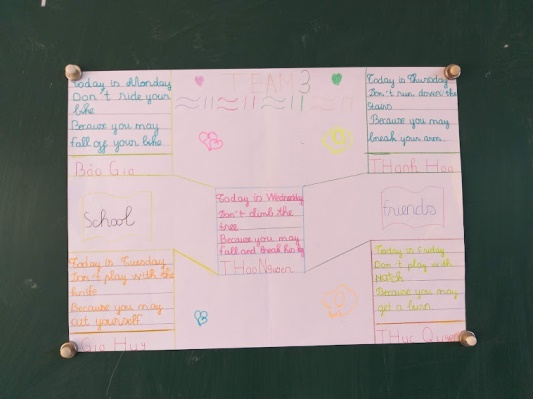 TEAM 3
Today is Monday
Don't ride your
bike
Because you may
fall off your bike
Bảo Gia
Today is Thursday
Don't run down the
stairs
Because you may
break your arm.
THanh Hoa
School
Today is Wednesday
Don't climb the
tree
Because you may
fall and break his leg
THao Nguyen
friends
Today is Tuesday
Don't play with the
knife
Because you may
cut yourself.
Gia Huy
Today is Friday
Don't play with
match
Because you may
get a burn
THuc Quyen